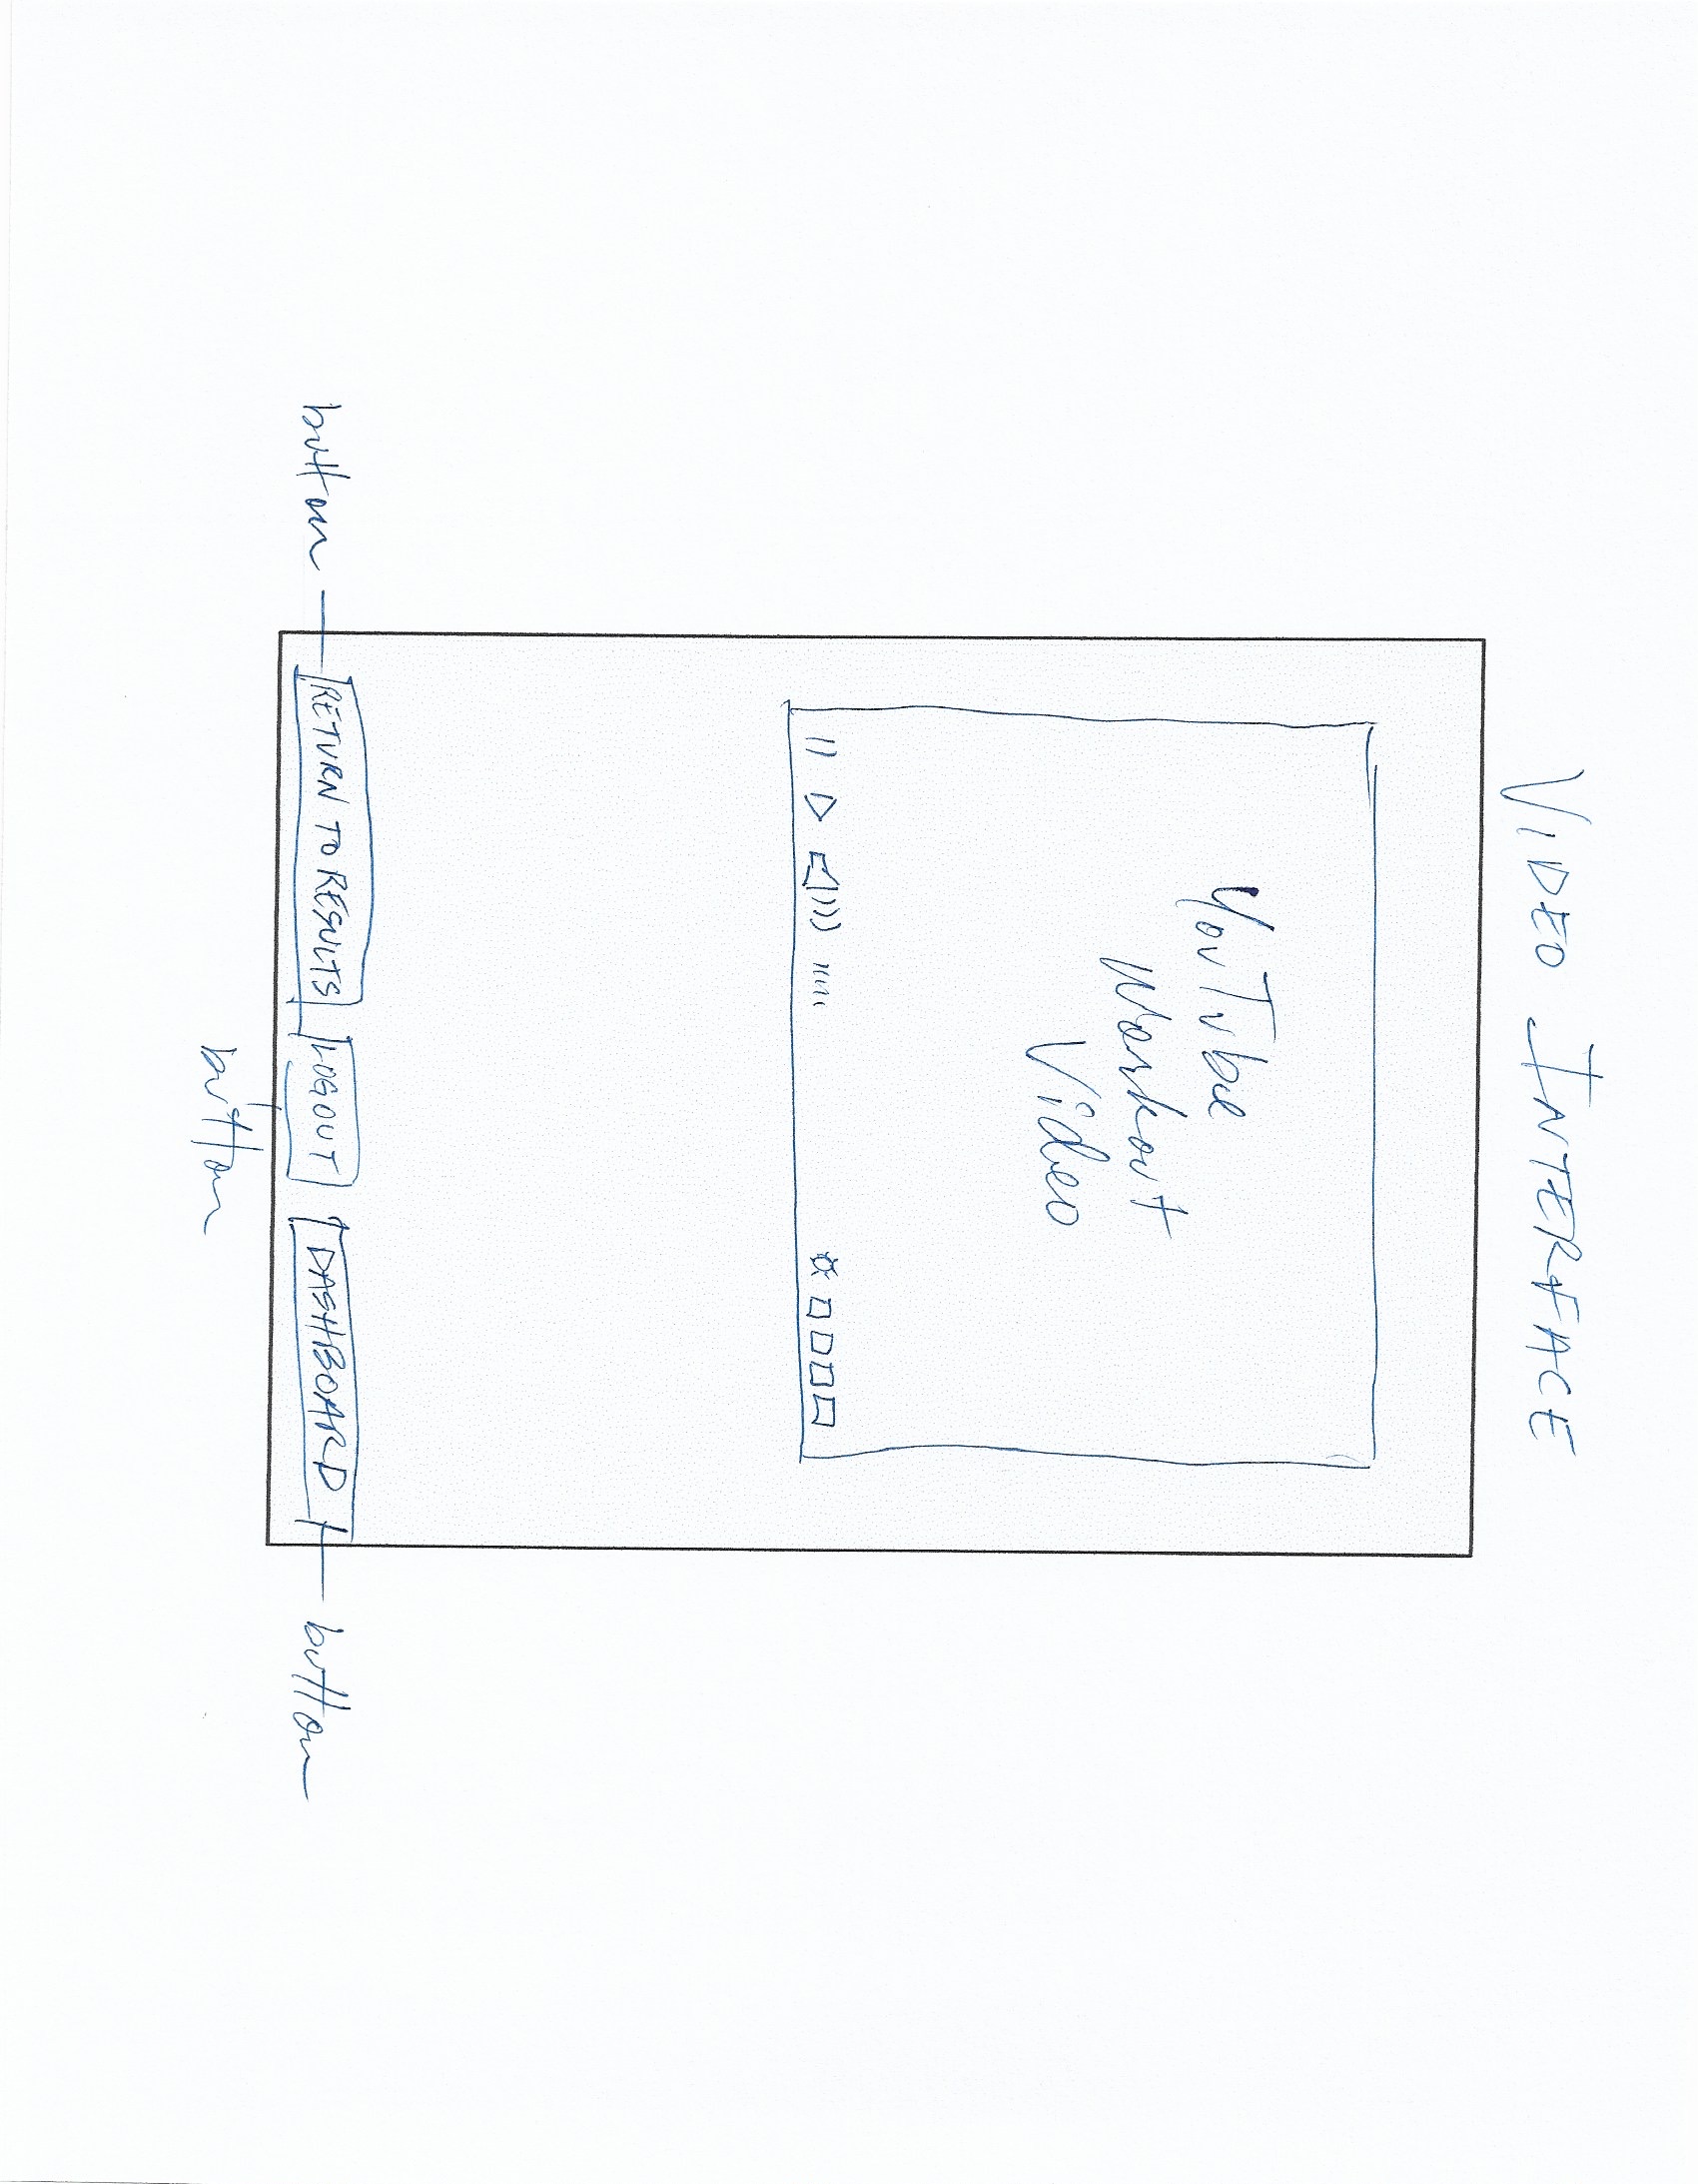 VIDEO INTERFACE
YouTube
Workout
Video
button
RETURN TO RESULTS
LOGOUT
DASHBOARD
button
button